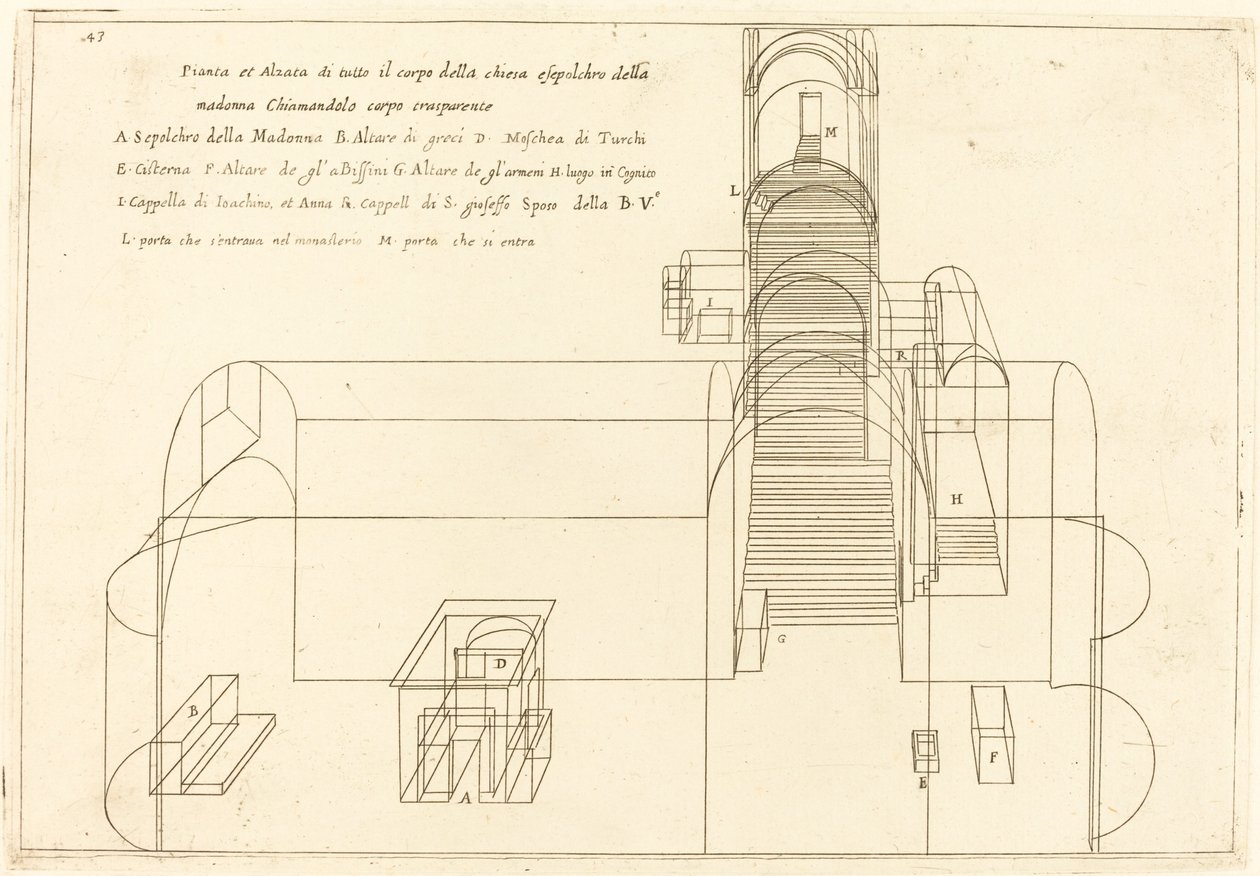 43
Pianta et Alzata di tutto il corpo della chiesa esepolchro della
madonna Chiamandolo corpo trasparente
A. Sepolchro della Madonna B. Altare di greci D. Moschea di Turchi
E. Cisterna F. Altare de gl' aBissini G. Altare de gl' armeni H. luogo in Cognito
I. Cappella di Ioachino, et Anna R. Cappell di S. gioseffo Sposo della B. V.e
L. porta che s'entraua nel monasterio M. porta che si entra
M
L
I
R
H
G
D
B
A
E
F